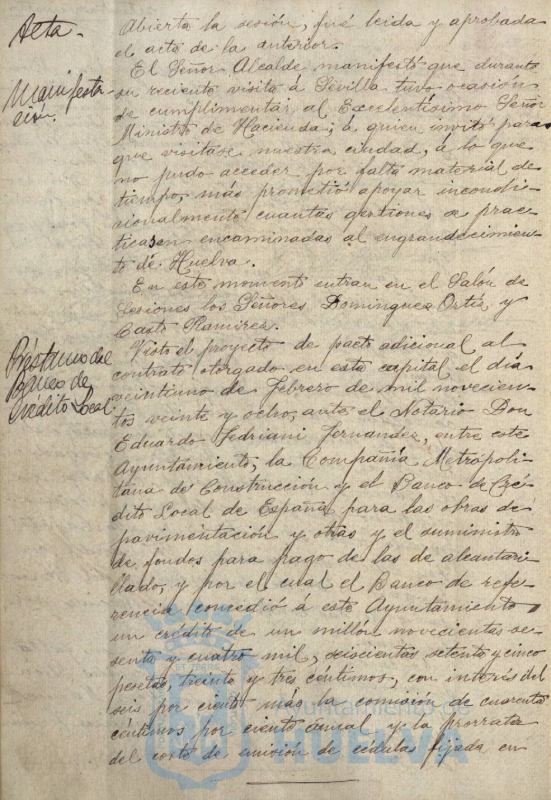 Acta.
Abierta la sesión, fué leida y aprobada
el acta de la anterior.
Manifesta
ción.
El Señor Alcalde manifestó que durante
su reciente visita á Sevilla tuvo ocasión
de cumplimentar al Excelentísimo Señor
Ministro de Hacienda, á quien invitó para
que visitase nuestra ciudad, á lo que
no pudo acceder por falta material de
tiempo, más prometió apoyar incondi-
cionalmente cuantas gestiones se prac-
ticasen encaminadas al engrandecimien-
to de Huelva.
En este momento entran en el Salón de
Sesiones los Señores Dominguez Ortiz y
Casto Ramirez.
Préstamo del
Banco de
Crédito Local
Visto el proyecto de pacto adicional al
contrato otorgado en esta capital el dia
veintiuno de febrero de mil novecien-
tos veinte y ocho, ante el Notario Don
Eduardo Fedriani Fernandez, entre este
Ayuntamiento, la Compañía Metropoli-
tana de Construcción y el Banco de Cré
dito Local de España para las obras de
pavimentación y otras y el suministro
de fondos para pago de las de alcantari-
llado, y por el cual el Banco de refe-
rencia concedió á este Ayuntamiento
un crédito de un millón novecientas se-
senta y cuatro mil, seiscientas setenta y cinco
pesetas, treinta y tres céntimos, con interés del
seis por ciento más la comisión de cuarenta
céntimos por ciento anual y la prorrata
del costo de emisión de cédulas fijada en
Ayuntamiento de
HUELVA